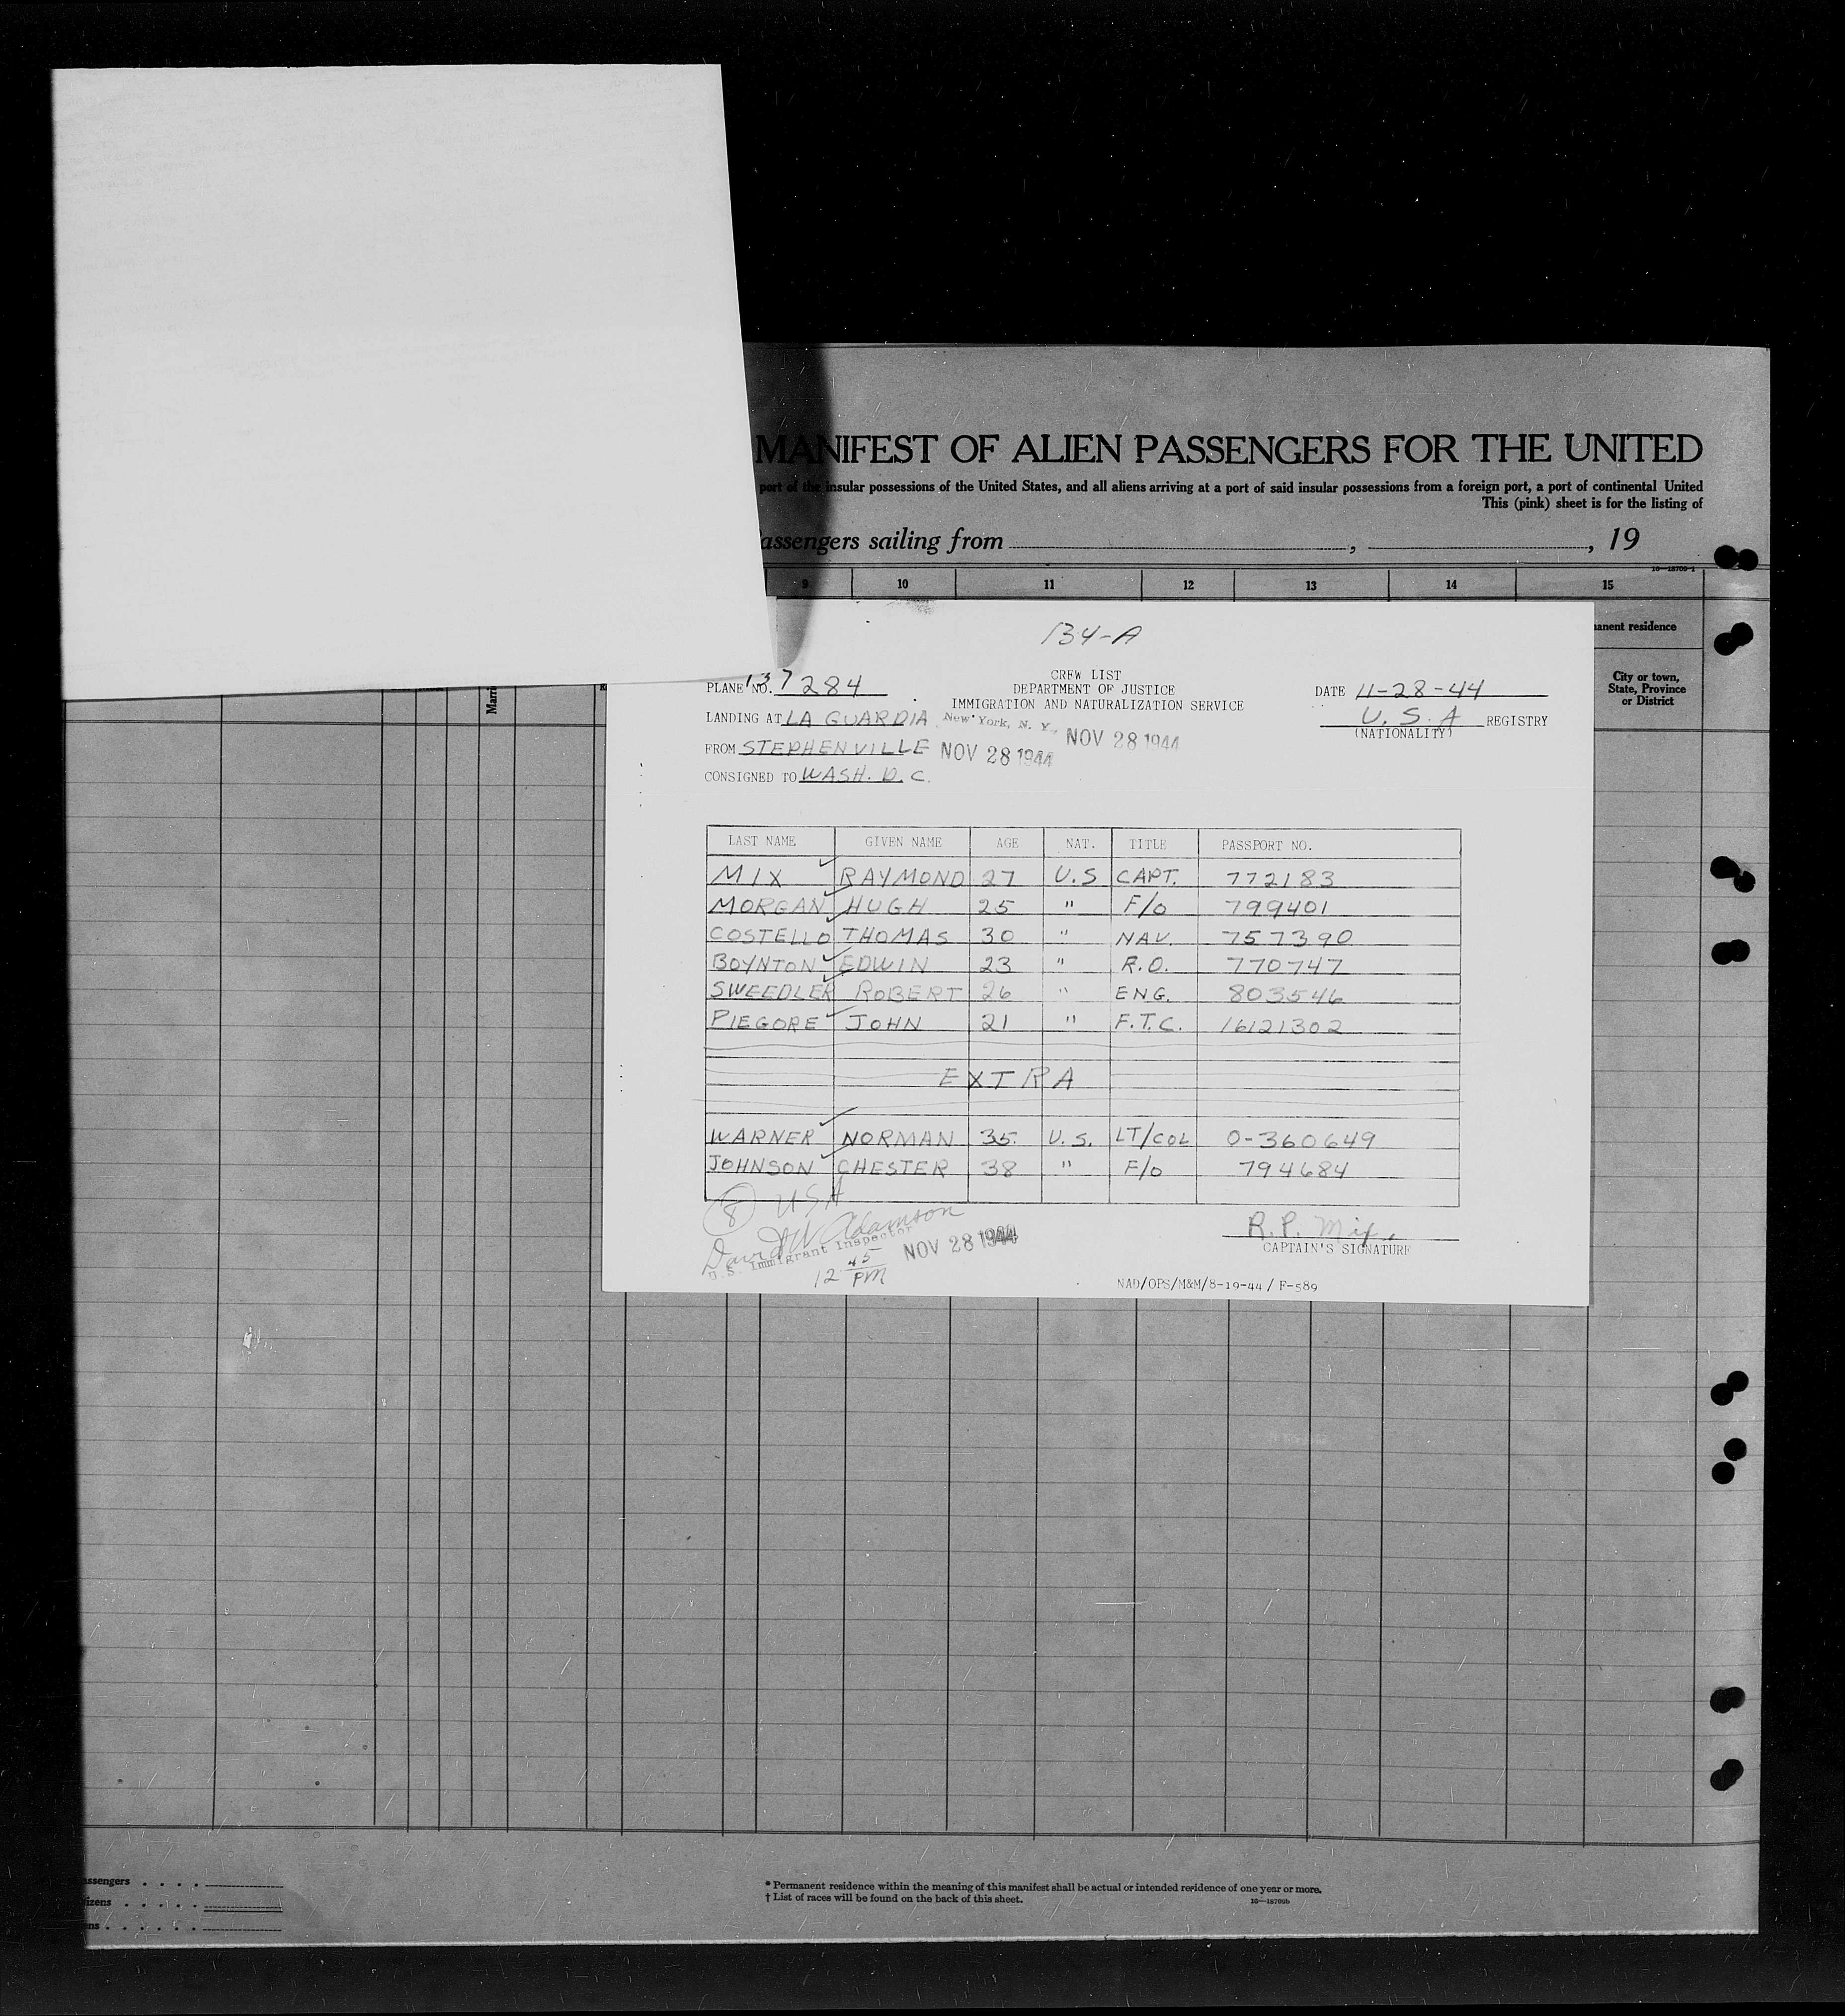 MANIFEST OF ALIEN PASSENGERS FOR THE UNITED
port of the insular possessions of the United States, and all aliens arriving at a port of said insular possessions from a foreign port, a port of continental United
This (pink) sheet is for the listing of
assengers sailing from , , 19
16—18700-1
9 10 11 12 13 14 15
anent residence
City or town,
State, Province
or District
Marri
134-A
CREW LIST
DEPARTMENT OF JUSTICE
IMMIGRATION AND NATURALIZATION SERVICE
PLANE NO. 137284
DATE 11-28-44
LANDING AT LA GUARDIA New York, N. Y.,
U.S.A REGISTRY
(NATIONALITY)
FROM STEPHENVILLE NOV 28 1944 NOV 28 1944
CONSIGNED TO WASH. D.C.
LAST NAME GIVEN NAME AGE NAT. TITLE PASSPORT NO.
MIX RAYMOND 27 U.S CAPT. 772183
MORGAN HUGH 25 " F/O 799401
COSTELLO THOMAS 30 " NAV. 757390
BOYNTON EDWIN 23 " R.O. 770747
SWEEDLER ROBERT 26 " ENG. 803546
PIEGORE JOHN 21 " F.T.C. 16121302
EXTRA
WARNER NORMAN 35 U.S. LT/COL 0-360649
JOHNSON CHESTER 38 " F/O 794684
8 USA
David W Adamson
U.S. Immigrant Inspector
NOV 28 1944
12 45 PM
R.P. Mix.
CAPTAIN'S SIGNATURE
NAD/OPS/M&M/8-19-44 / F-589
assengers . . . .
izens . . . . .
ns . . . . . .
* Permanent residence within the meaning of this manifest shall be actual or intended residence of one year or more.
† List of races will be found on the back of this sheet.
16—18700b